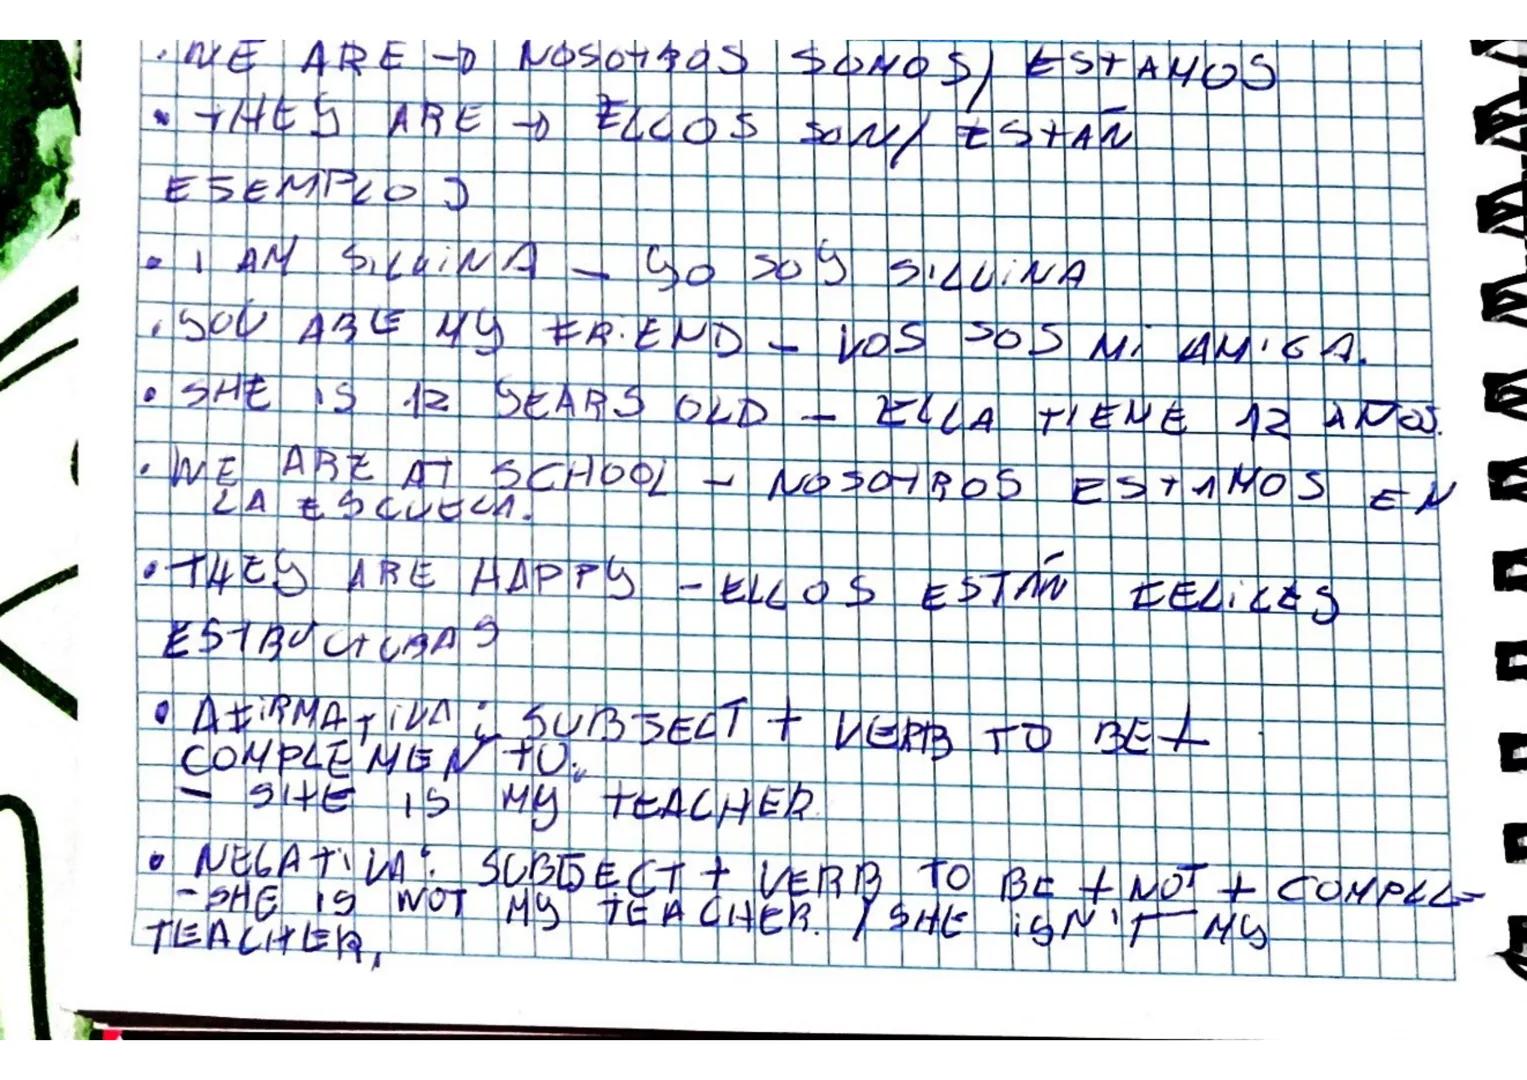 • WE ARE → NOSOTROS SOMOS/ ESTAMOS
• THEY ARE → ELLOS SON/ ESTÁN
EJEMPLOS
• I AM SILVINA - YO SOY SILVINA
• YOU ARE MY FRIEND - VOS SOS MI AMIGA.
• SHE IS 12 YEARS OLD - ELLA TIENE 12 AÑOS.
• WE ARE AT SCHOOL - NOSOTROS ESTAMOS EN
LA ESCUELA.
• THEY ARE HAPPY - ELLOS ESTÁN FELICES
ESTRUCTURAS
• AFIRMATIVA: SUBJECT + VERB TO BE +
COMPLEMENTO.
- SHE IS MY TEACHER
• NEGATIVA: SUBJECT + VERB TO BE + NOT + COMPLE-
- SHE IS NOT MY TEACHER. / SHE ISN'T MY
TEACHER.